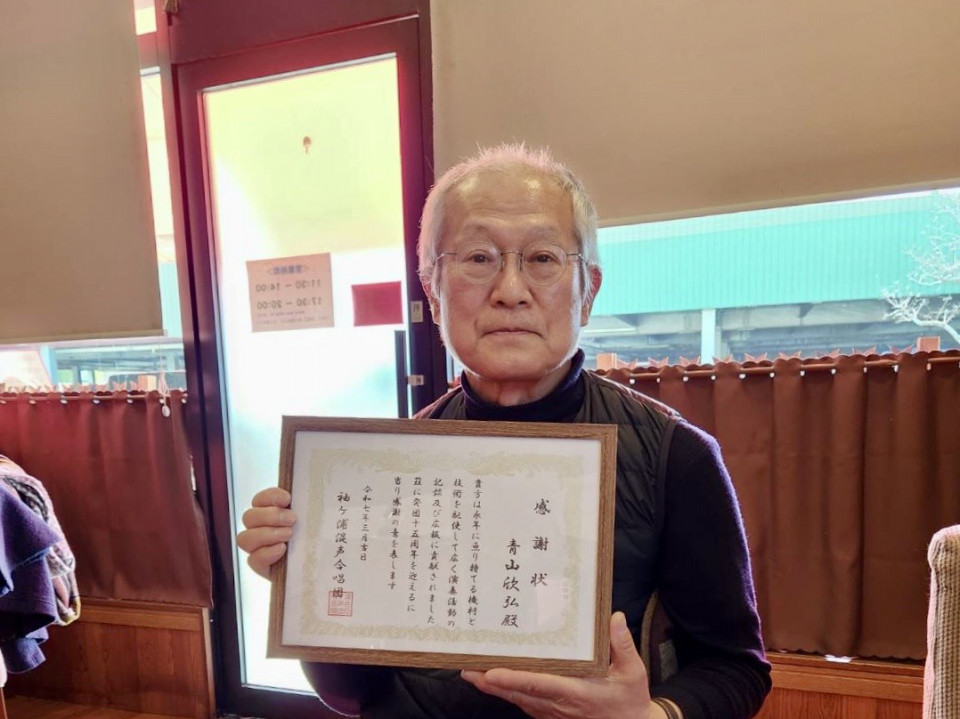 感謝状
青山欣弘殿
貴方は永年に亘り持てる機材と
技術を駆使して広く演奏活動の
記録及び広報に貢献されました
茲に発団十五周年を迎えるに
当り感謝の意を表します
令和七年三月吉日
袖ケ浦混声合唱団
<営業時間>
11:30 ~ 14:00
17:30 ~ 20:00